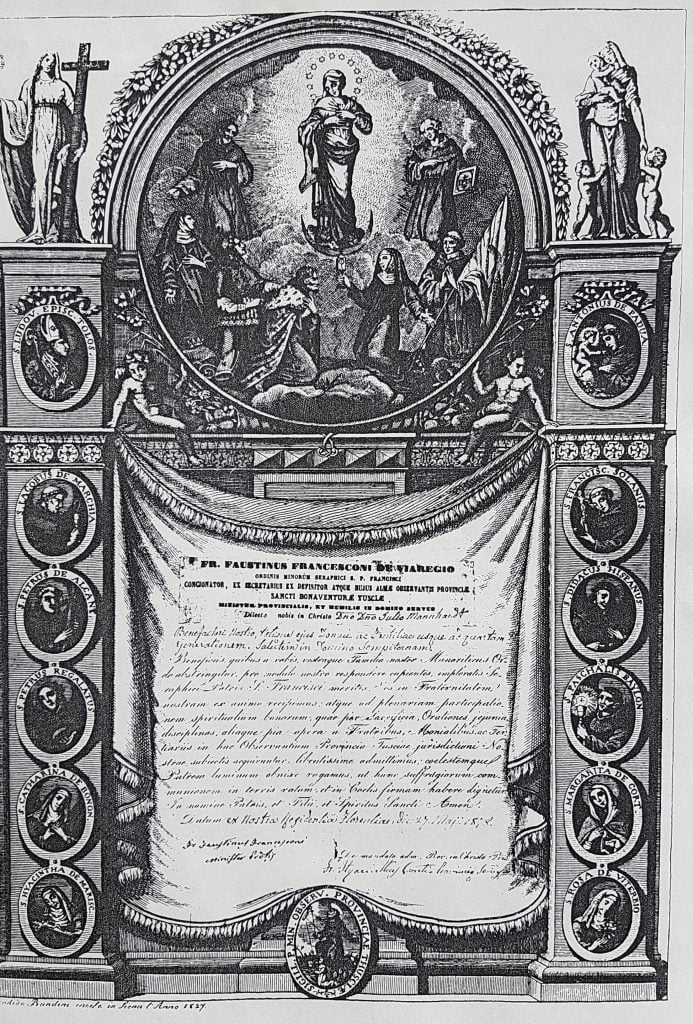 S. LUDOV. EPISC. TOLOS.
S. ANTONIUS DE PADUA
S. JACOBUS DE MARCHIA
S. FRANCISC. SOLANUS
S. PETRUS DE ALCANT.
S. DIDACUS HISPANUS
S. PETRUS REGALATUS
S. PASCHALIS BAYLON
S. CATHARINA DE BONON.
S. MARGARITA DE CORT.
S. HYACINTHA DE MARISC.
S. ROSA DE VITERBIO
FR. FAUSTINUS FRANCESCONI DE VIAREGIO
ORDINIS MINORUM SERAPHICI S. P. FRANCISCI
CONCIONATOR, EX SECRETARIUS EX DEFINITOR ATQUE HUJUS ALMÆ OBSERVANTIS PROVINCIÆ
SANCTI BONAVENTURÆ TUSCIÆ
MINISTER PROVINCIALIS, ET HUMILIS IN DOMINO SERVUS
Dilecto nobis in Christo Dno Dno Julio Manchardt
Benefactori Nostro ejus ac Familiae usque ac quartam
Generationem. Salutem in Domino Sempiternam.
Beneficus quibus a vobis, vestraque Familia noster Minoriticus Or-
do abstringitur, pro modulo nostro respondere cupientes, imploratis Se-
raphici Patris S. Francisci meritis, Vos in Fraternitatem
nostram ex animo recipimus, atque ad plenariam participatio-
nem spiritualium bonorum, quae per Sacrificia, Orationes, jejunia,
disciplinas, aliaque pia opera a Fratribus, Monialibus, ac Ter-
tiariis in hac Observantium Provincia Tusciae jurisdictioni No-
strae subjectis acquiruntur, libentissime admittimus, coelestemque
Patrem luminum obnixe rogamus, ut hanc suffragiorum com-
munionem in terris ratam, et in Coelis firmam habere dignetur
In nomine Patris, et Filii, et Spiritus Sancti. Amen.
Datum ex Nostra Residentia Florentiae die 27 Maji 1878.
Fr Faustinus Francesconi
Minister Prov.
De mandato adm. Rev. in Christo Pris
SIGILL. P. MIN. OBSERV. PROVINCIAE TUSCIAE
Bandini incise in Siena l'Anno 1827